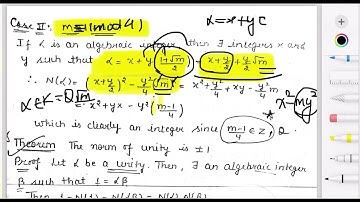 Case II: m≡1(mod 4)
α = x + y c
If α is an algebraic integer, then ∃ integers x and
y such that α = x + y (1+√m)/2 = x + y/2 + y/2 √m
∴ N(α) = (x + y/2)² − y²/4 m = x² + y²/4 + xy − y²/4 m
α ∈ Q√m = x² + yx − y² (m−1/4)
x² − my²
which is clearly an integer since m−1/4 ∈ Z,
Theorem The norm of unity is ±1
Proof Let α be a unity. Then, ∃ an algebraic integer
β such that 1 = αβ